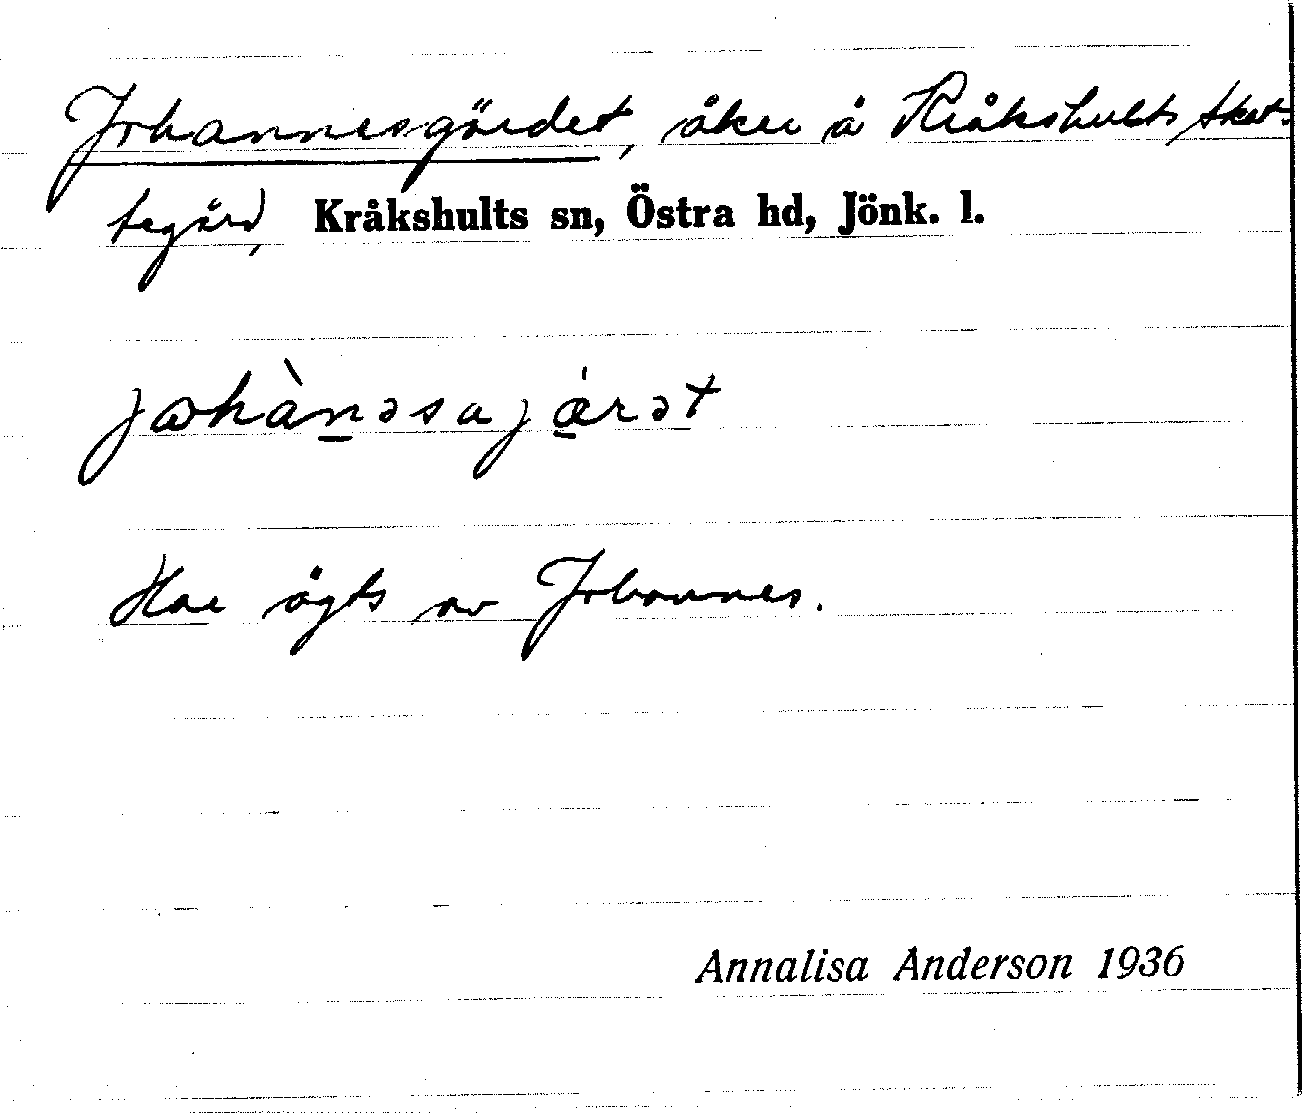 Johannesgärdet, åker å Kråkshults Skat-
tegård, Kråkshults sn, Östra hd, Jönk. l.
jωhànəsajærət
Har ägts av Johannes.
Annalisa Anderson 1936